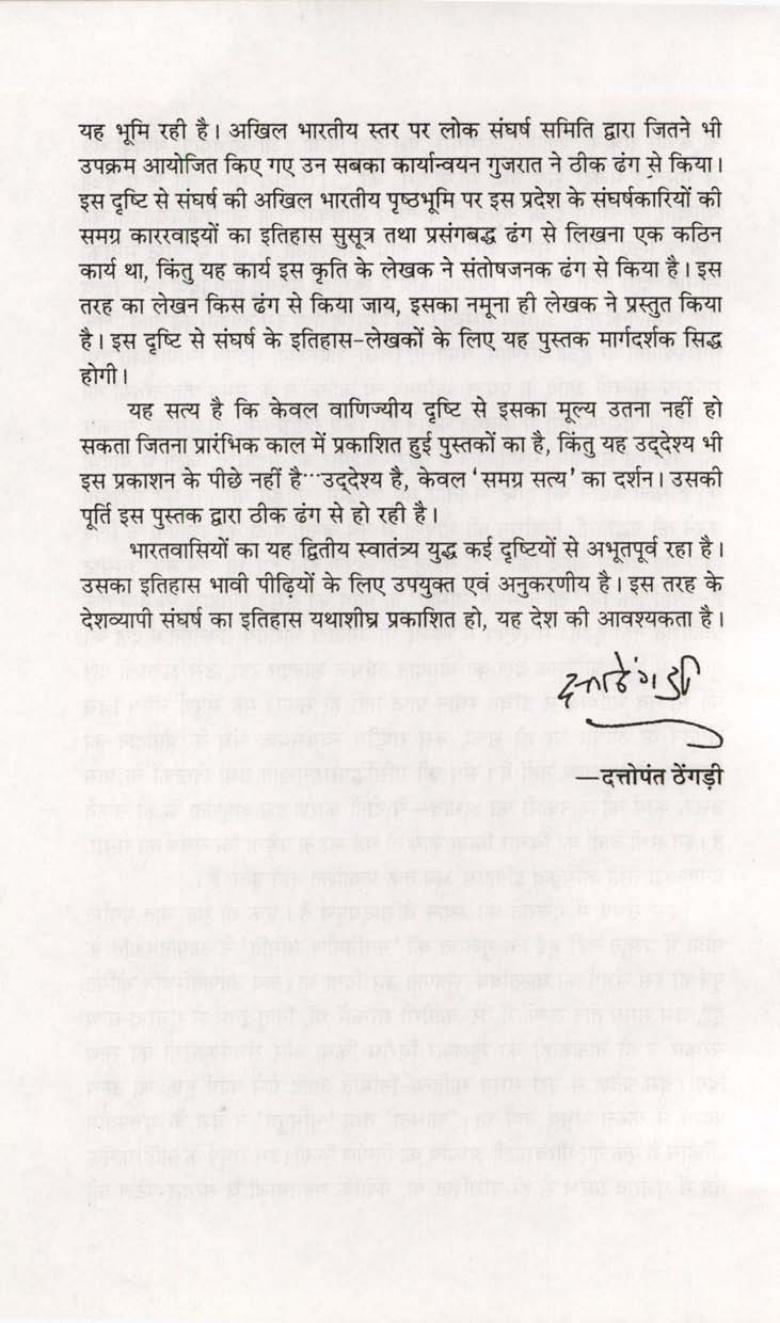 यह भूमि रही है। अखिल भारतीय स्तर पर लोक संघर्ष समिति द्वारा जितने भी
उपक्रम आयोजित किए गए उन सबका कार्यान्वयन गुजरात ने ठीक ढंग से किया।
इस दृष्टि से संघर्ष की अखिल भारतीय पृष्ठभूमि पर इस प्रदेश के संघर्षकारियों की
समग्र काररवाइयों का इतिहास सुसूत्र तथा प्रसंगबद्ध ढंग से लिखना एक कठिन
कार्य था, किंतु यह कार्य इस कृति के लेखक ने संतोषजनक ढंग से किया है। इस
तरह का लेखन किस ढंग से किया जाय, इसका नमूना ही लेखक ने प्रस्तुत किया
है। इस दृष्टि से संघर्ष के इतिहास-लेखकों के लिए यह पुस्तक मार्गदर्शक सिद्ध
होगी।
यह सत्य है कि केवल वाणिज्यीय दृष्टि से इसका मूल्य उतना नहीं हो
सकता जितना प्रारंभिक काल में प्रकाशित हुई पुस्तकों का है, किंतु यह उद्देश्य भी
इस प्रकाशन के पीछे नहीं है···उद्देश्य है, केवल ‘समग्र सत्य’ का दर्शन। उसकी
पूर्ति इस पुस्तक द्वारा ठीक ढंग से हो रही है।
भारतवासियों का यह द्वितीय स्वातंत्र्य युद्ध कई दृष्टियों से अभूतपूर्व रहा है।
उसका इतिहास भावी पीढ़ियों के लिए उपयुक्त एवं अनुकरणीय है। इस तरह के
देशव्यापी संघर्ष का इतिहास यथाशीघ्र प्रकाशित हो, यह देश की आवश्यकता है।
—दत्तोपंत ठेंगड़ी